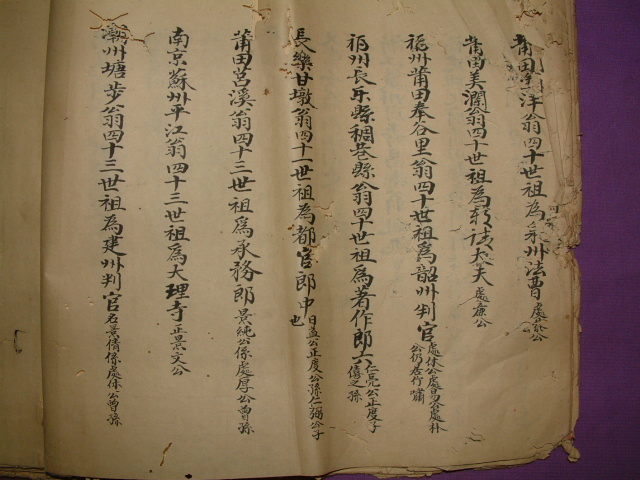 莆田洋翁四十世祖為泉州法曹處易公
莆田美瀾翁四十世祖為朝議大夫處廉公
福州莆田奉谷里翁四十世祖為韶州判官處休公處昌公處朴公仍居竹嘯
福州長乐縣稠巷縣翁四十世祖為著作郎六仁亮公正度子僖之孫
長樂甘墩翁四十一世祖為都官郎中也日益公正度公孫仁弼公子
莆田莒溪翁四十三世祖為承務郎景純公係處厚公曾孫
南京蘇州平江翁四十三世祖為大理寺正景文公
潮州塘步翁四十三世祖為建州判官名景倩係處休公曾孫